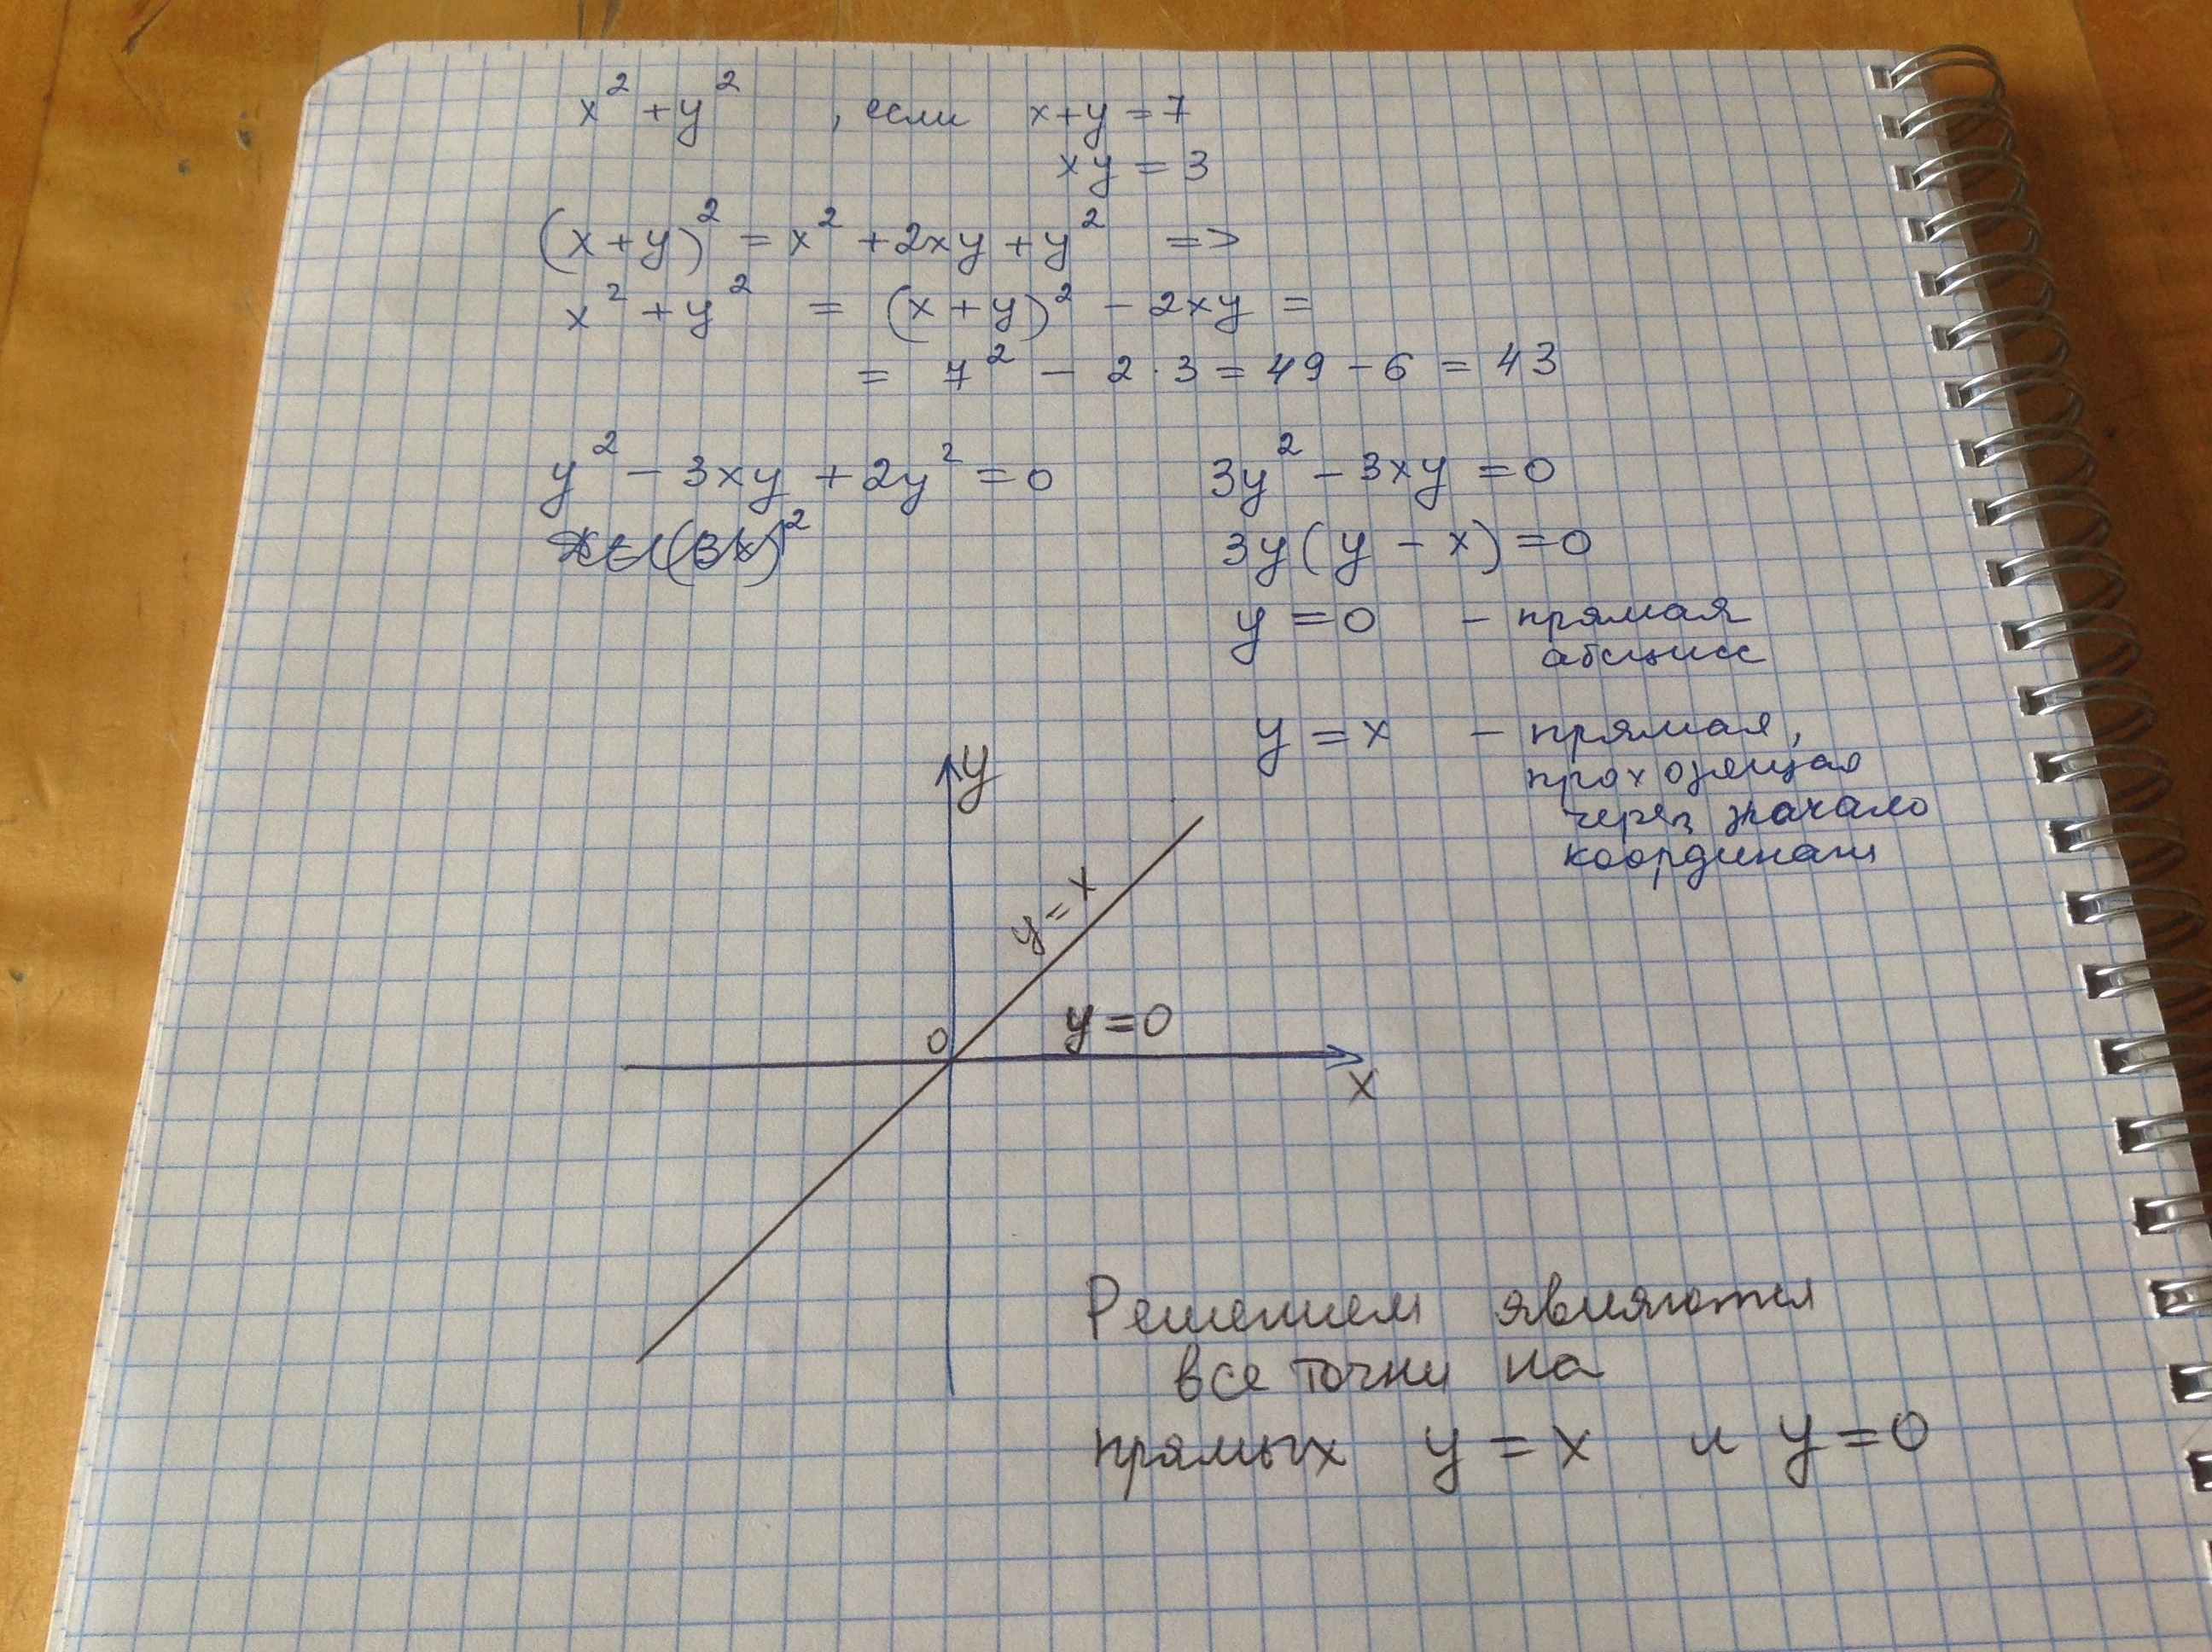 x² + y² , если x+y = 7
xy = 3
(x+y)² = x² + 2xy + y² =>
x² + y² = (x+y)² - 2xy =
= 7² - 2·3 = 49 - 6 = 43
y² - 3xy + 2y² = 0
3y² - 3xy = 0
3y(y - x) = 0
y = 0 - прямая
абсцисс
y = x - прямая,
проходящая
через начало
координат
y
y = x
0
y = 0
x
Решением являются
все точки на
прямых y = x и y = 0